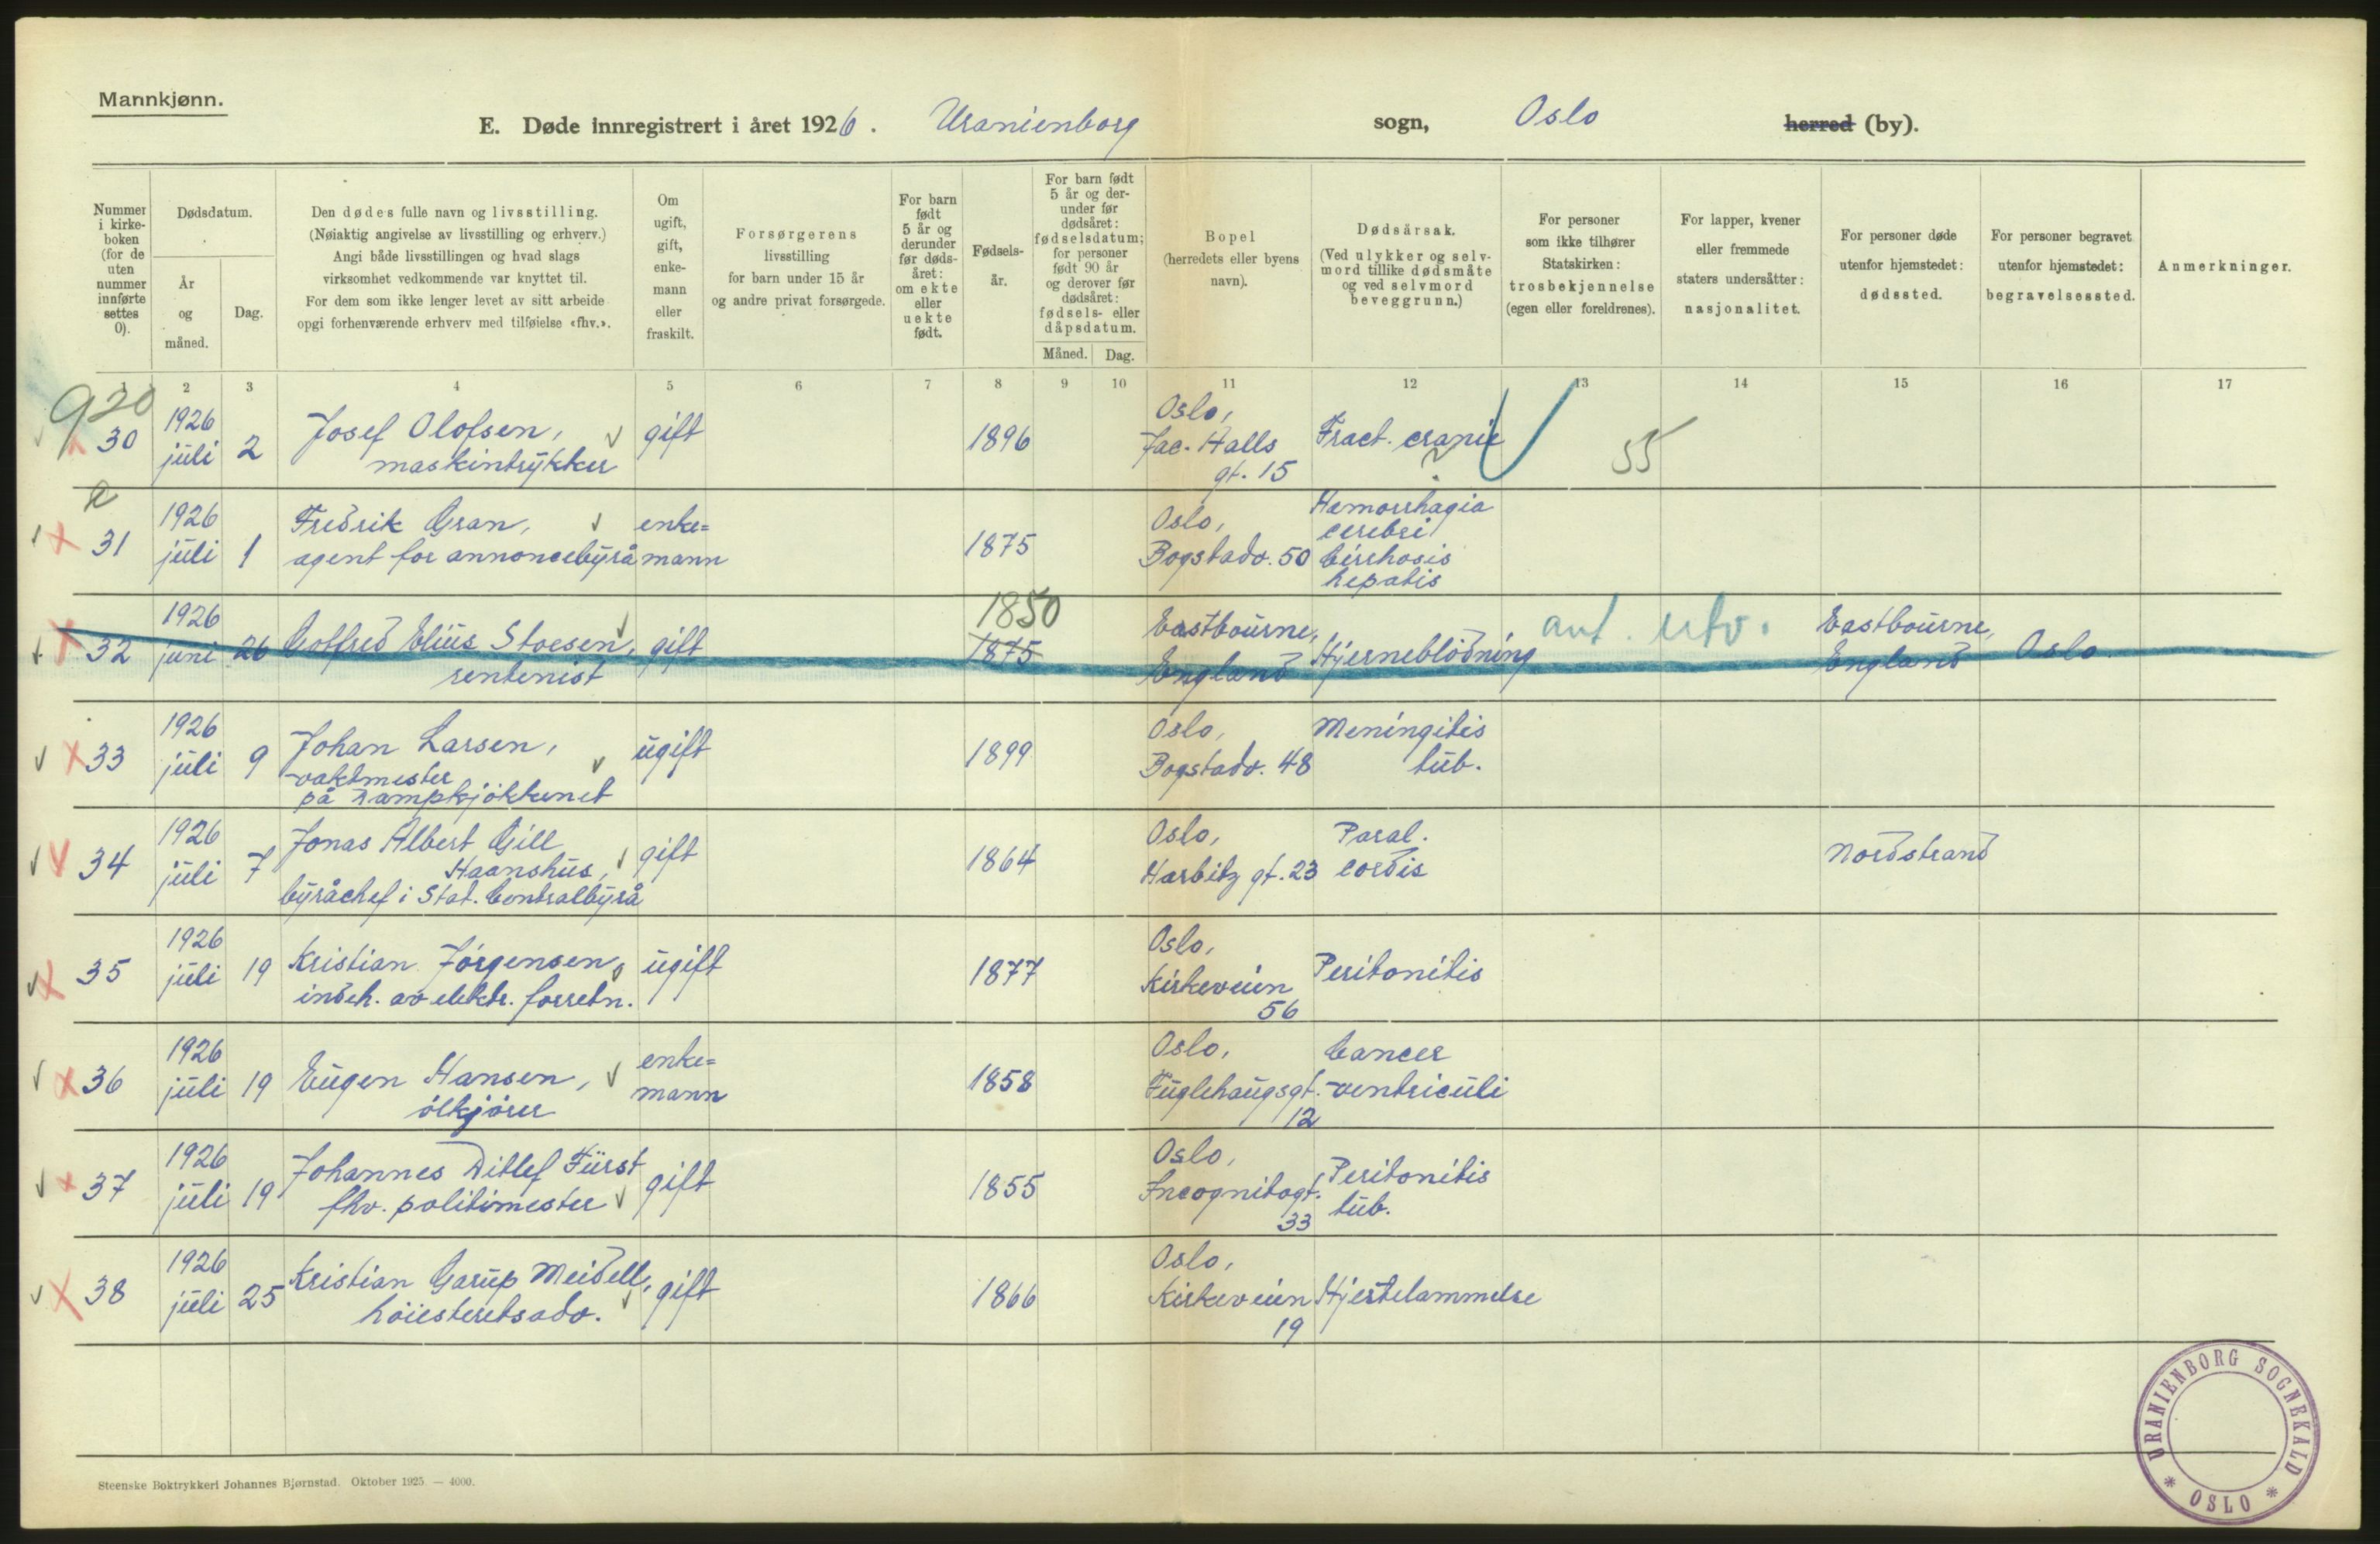 Mannkjønn.
E. Døde innregistrert i året 1926. Uranienborg sogn, Oslo herred (by).
Nummer i kirke-boken (for de uten nummer innførte settes 0).
Dødsdatum.
År og måned.
Dag.
Den dødes fulle navn og livsstilling.
(Nøiaktig angivelse av livsstilling og erhverv.)
Angi både livsstillingen og hvad slags
virksomhet vedkommende var knyttet til.
For dem som ikke lenger levet av sitt arbeide
opgi forhenværende erhverv med tilføielse «fhv.».
Om ugift, gift, enke-mann eller fraskilt.
Forsørgerens
livsstilling
for barn under 15 år
og andre privat forsørgede.
For barn født 5 år og derunder før døds-året: om ekte eller uekte født.
Fødsels-år.
For barn født 5 år og der-under før dødsåret: fødselsdatum; for personer født 90 år og derover før dødsåret: fødsels- eller dåpsdatum.
Måned. Dag.
Bopel
(herredets eller byens navn).
Dødsårsak.
(Ved ulykker og selv-mord tillike dødsmåte og ved selvmord beveggrunn.)
For personer som ikke tilhører Statskirken: trosbekjennelse (egen eller foreldrenes).
For lapper, kvener eller fremmede staters undersåtter: nasjonalitet.
For personer døde utenfor hjemstedet: dødssted.
For personer begravet utenfor hjemstedet: begravelsessted.
Anmerkninger.
1 2 3 4 5 6 7 8 9 10 11 12 13 14 15 16 17
920
30 1926 juli 2 Josef Olofsen, maskintrykker gift 1896 Oslo, Jac. Halls gt. 15 Fract. cranie ? 55
31 1926 juli 1 Fredrik Gran, agent for annoncebyrå enke=mann 1875 Oslo, Bogstadv. 50 Hæmorrhagia cerebri Cirrhosis hepatis
32 1926 juni 26 Gotfred Elius Stoesen, rentenist gift 1850 1875 Eastbourne, England Hjerneblödning ant. utv. Eastbourne, England Oslo
33 1926 juli 9 Johan Larsen, vaktmester på Dampkjökkenet ugift 1899 Oslo, Bogstadv. 48 Meningitis tub.
34 1926 juli 7 Jonas Albert Gill Haanshus, byråchef i Stat. Centralbyrå gift 1864 Oslo, Harbitz gt. 23 Paral. cordis Nordstrand
35 1926 juli 19 Kristian Jörgensen, indeh. av elektr. forretn. ugift 1877 Oslo, Kirkeveien 56 Peritonitis
36 1926 juli 19 Eugen Hansen, ölkjörer enke=mann 1858 Oslo, Fuglehaugsgt. 12 Cancer ventriculi
37 1926 juli 19 Johannes Ditlef Fürst fhv. politimester gift 1855 Oslo, Incognitogt. 33 Peritonitis tub.
38 1926 juli 25 Kristian Garup Meidell, höiesteretsadv. gift 1866 Oslo, Kirkeveien 19 Hjertelammelse
Steenske Boktrykkeri Johannes Bjørnstad. Oktober 1925. — 4000.
URANIENBORG SOGNEKALD * OSLO *